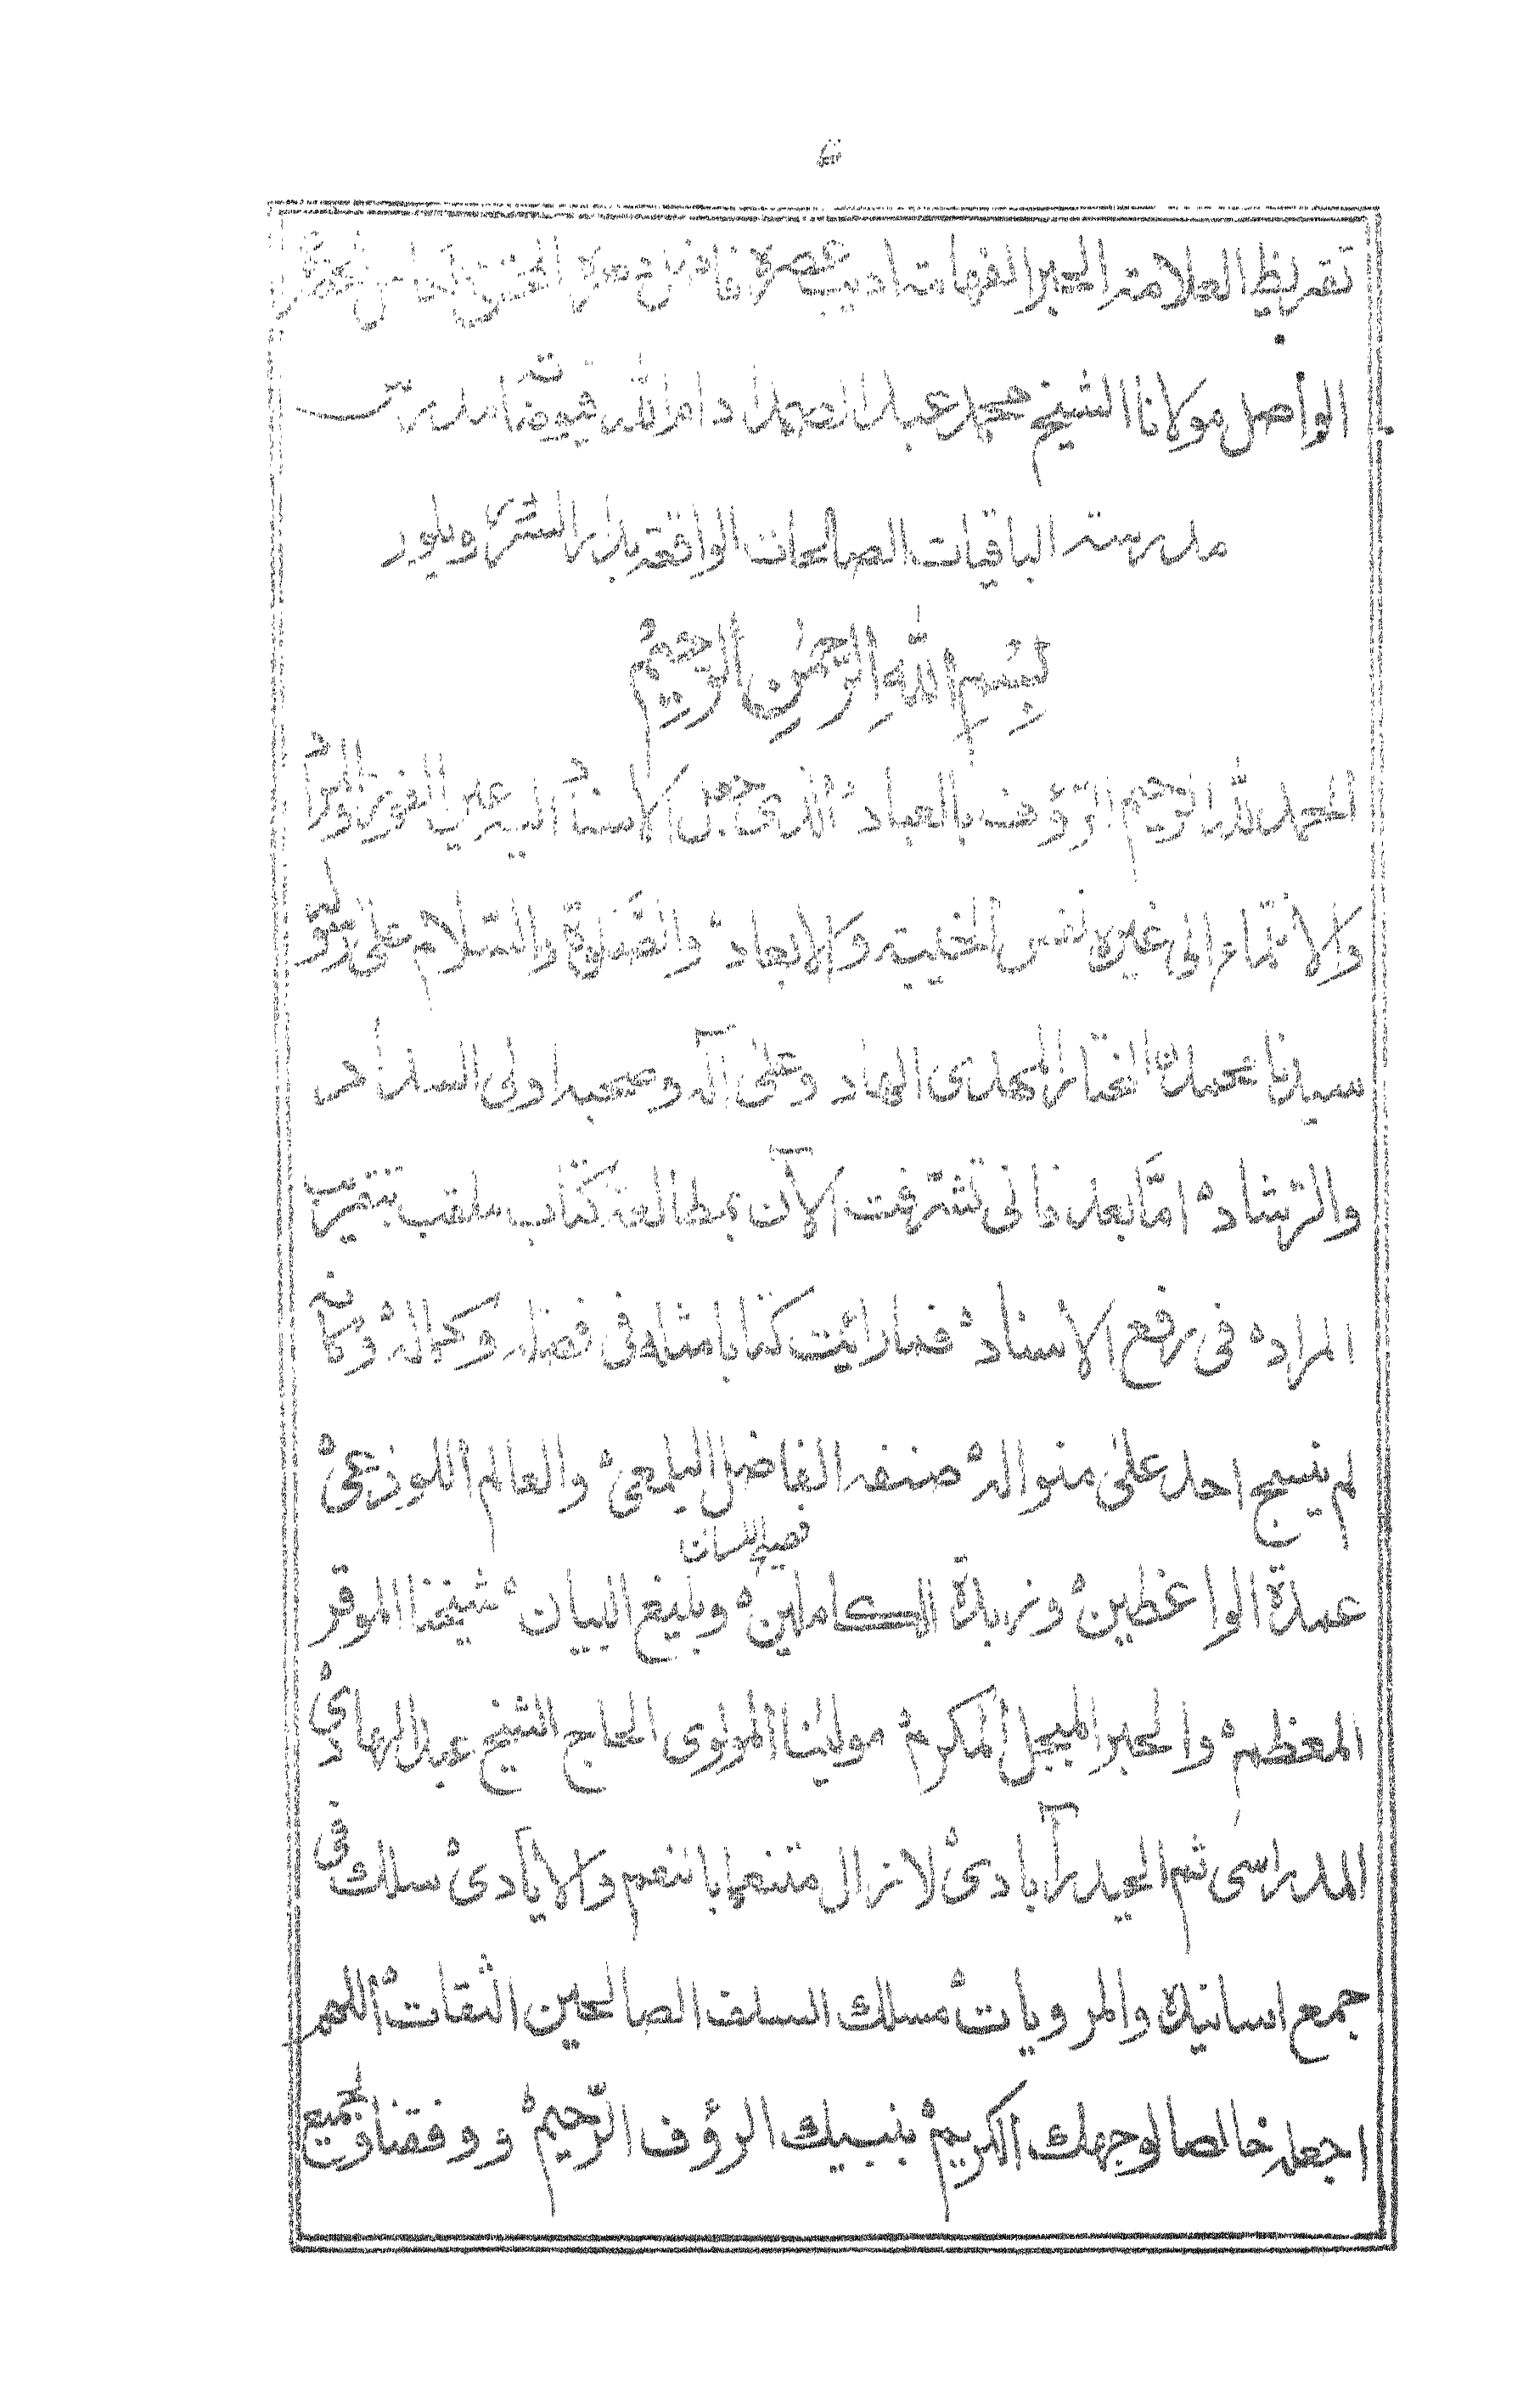 تقريظ العلامة الحبر الفهامة اديب عصره
الواصل مولانا الشيخ محمد عبد الصمد ادام الله فيوضاته مدرس
مدرسة الباقيات الصالحات الواقعة بدار السرور ويلور
بِسْمِ اللهِ الرَّحْمٰنِ الرَّحِيْمِ
الحمد لله الرحيم الرؤف بالعباد الذى جعل الاسناد اليه عين الفوز والمراد
والانتماء الى غيره نفس الخيبة والابعاد والصلوة والسلام على رسوله
سيدنا محمدن المختار المهدى الهاد وعلى آله وصحبه اولى السداد
والرشاد امّا بعد فانى تشرفت الآن بمطالعة كتاب ملقب بتقريب
المراد فى رفع الاسناد فما رائيت كتابا مثله فى فضله وكماله وكانه
لم ينسج احد على منواله صنفه الفاضل اليلمعى والعالم اللوذعى
عمدة الواعظين وزبدة الكاملين فصيح اللسان وبليغ البيان شيخنا الموقر
المعظم والحبر المبجل المكرم مولينا المولوى الحاج الشيخ عبد الهادى
المدراسى ثم الحيدرآبادى لازال متنعما بالنعم والايادى سلك فى
جمع اسانيده والمرويات مسلك السلف الصالحين الثقات اللهم
اجعله خالصا لوجهك الكريم بنبيك الرؤف الرّحيم ووفقنا وجميع